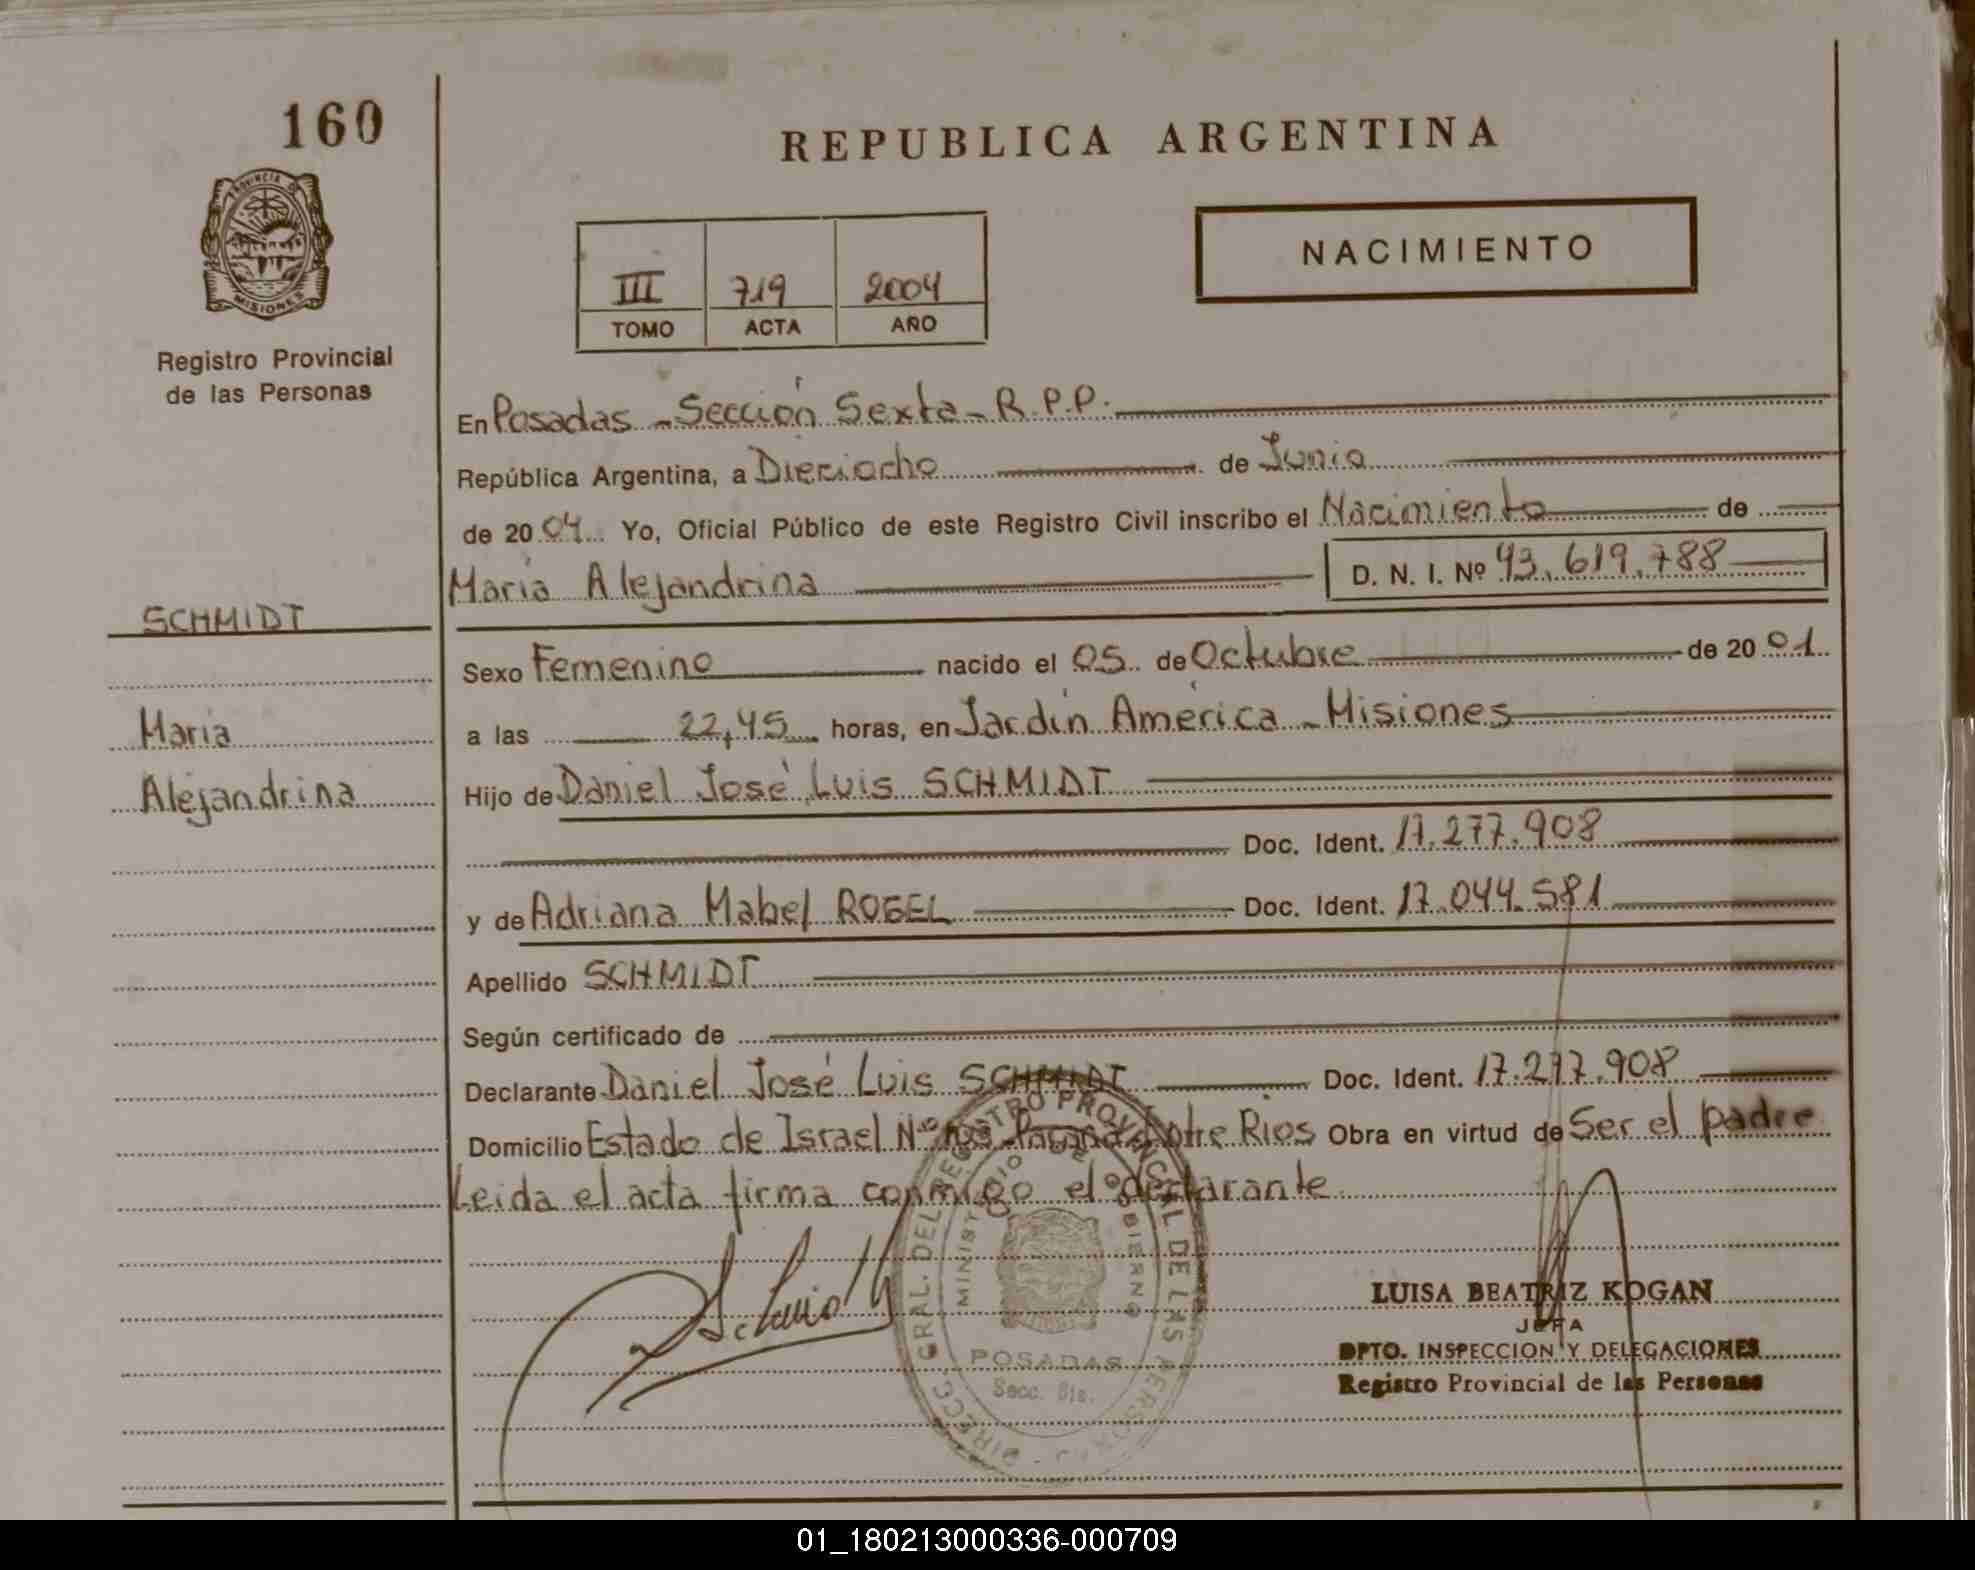 160
REPUBLICA ARGENTINA
PROVINCIA DE
MISIONES
Registro Provincial
de las Personas
NACIMIENTO
III 719 2004
TOMO ACTA AÑO
En Posadas - Sección Sexta - R.P.P.
República Argentina, a Dieciocho de Junio
de 2004 Yo, Oficial Público de este Registro Civil inscribo el Nacimiento de
María Alejandrina D. N. I. Nº 43.619.788
SCHMIDT
María
Alejandrina
Sexo Femenino nacido el 05 de Octubre de 2001
a las 22,45 horas, en Jardín América - Misiones
Hijo de Daniel José Luis SCHMIDT
Doc. Ident. 17.277.908
y de Adriana Mabel ROGEL Doc. Ident. 17.044.581
Apellido SCHMIDT
Según certificado de
Declarante Daniel José Luis SCHMIDT Doc. Ident. 17.277.908
Domicilio Estado de Israel Nº Paraná Entre Rios Obra en virtud de Ser el padre
Leida el acta firma conmigo el declarante
DIRECC. GRAL. DEL REGISTRO PROVINCIAL DE LAS PERSONAS
MINISTERIO DE GOBIERNO
POSADAS
Secc. 6ta.
LUISA BEATRIZ KOGAN
JEFA
DPTO. INSPECCION Y DELEGACIONES
Registro Provincial de las Personas
01_180213000336-000709